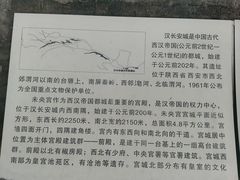 汉长安城是中国古代
西汉帝国(公元前2世纪一
公元1世纪)的都城，始建
于公元前202年。其遗址
位于陕西省西安市西北
郊渭河以南的台塬上，南屏秦岭，西邻沣河，北临渭河。1961年公布
为全国重点文物保护单位。
未央宫作为西汉帝国都城最重要的宫殿，是汉帝国的权力中心，
位于长安城内西南隅，始建于公元前200年。未央宫宫城平面近似
方形，东西长约2250米，南北约2150米，总面积4.8平方公里。宫
墙四面开门，四隅建角楼。宫内有东西向和南北向的干道。宫城居中
位置为主体宫殿建筑群——前殿，是建于同一台基上的一组高台建筑
群。前殿以北有椒房殿；西北有少府、中央官署等官署建筑。宫城西
南部为皇宫池苑区，有沧池等遗存。宫城北部分布有皇室的文化